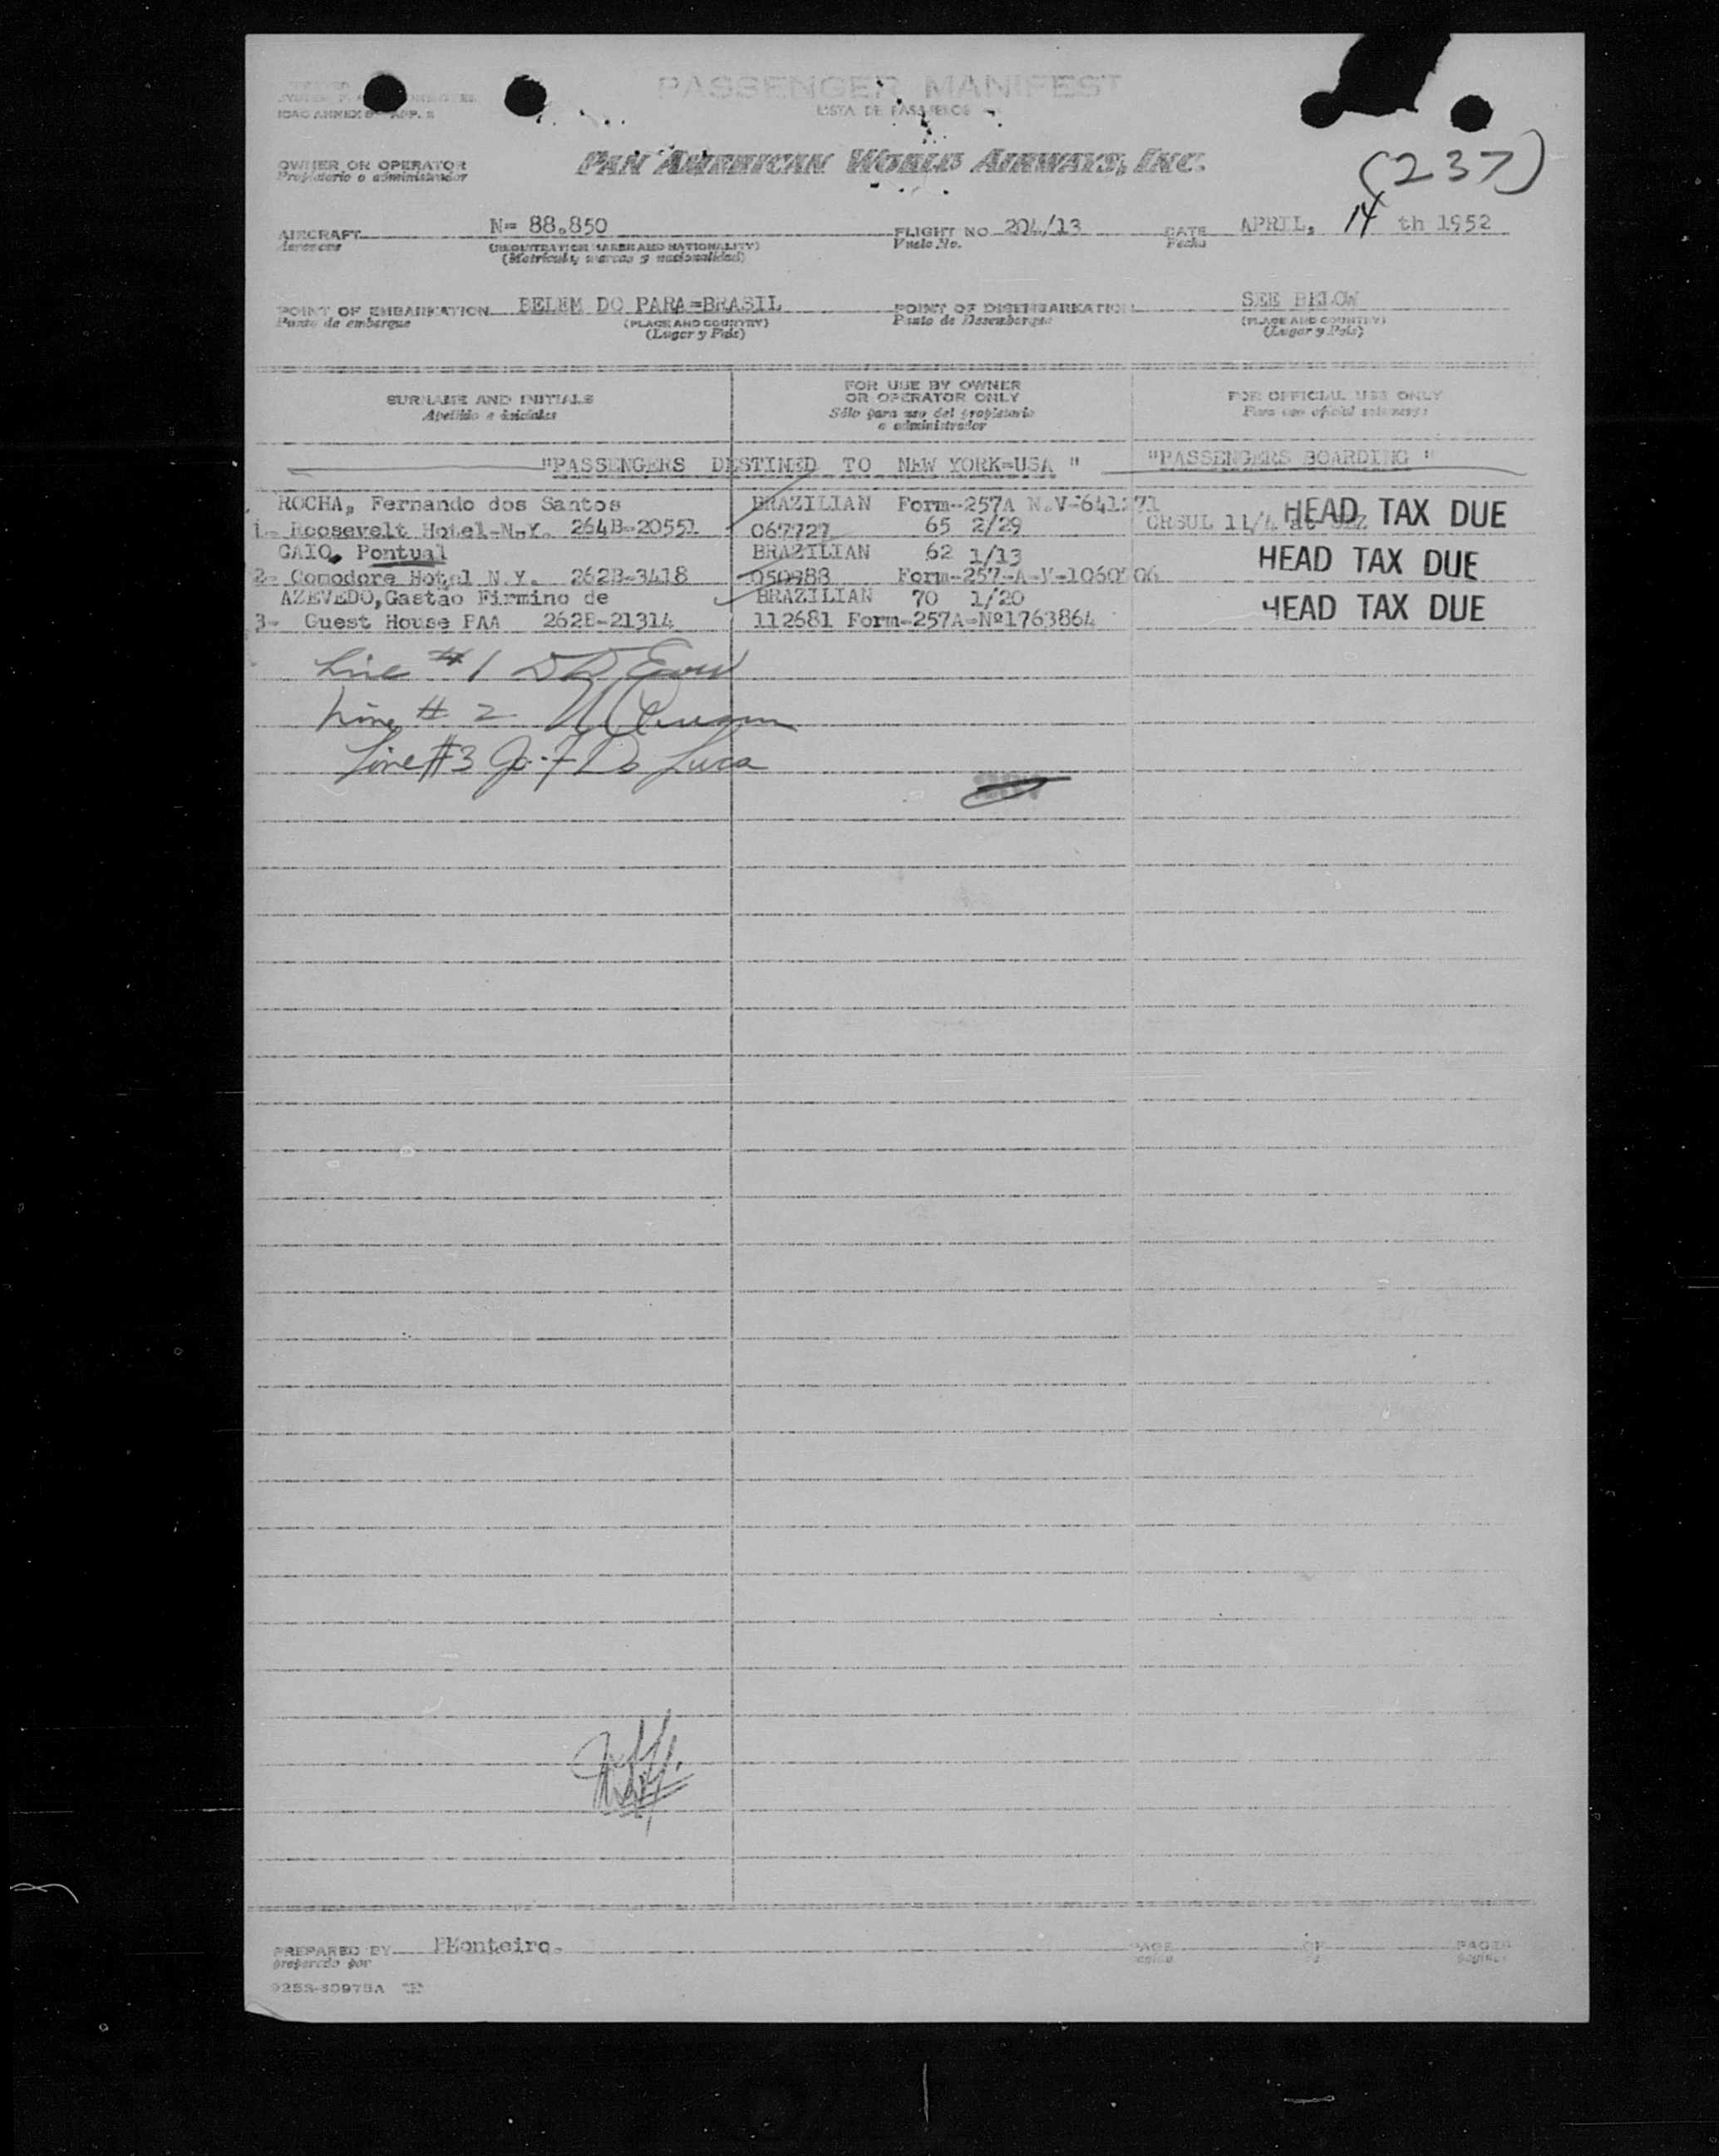 PASSENGER MANIFEST
LISTA DE PASAJEROS
ICAO ANNEX 9 APP. 2
OWNER OR OPERATOR
Propietario o administrador
PAN AMERICAN WORLD AIRWAYS, INC.
(237)
AIRCRAFT N= 88.850 FLIGHT NO 204/13 DATE APRIL, 14 th 1952
Aeronave (REGISTRATION MARKS AND NATIONALITY) Vuelo No. Fecha
(Matricula, marcas y nacionalidad)
POINT OF EMBARKATION BELEM DO PARA=BRASIL POINT OF DISEMBARKATION SEE BELOW
Punto de embarque (PLACE AND COUNTRY) Punto de Desembarque (PLACE AND COUNTRY)
(Lugar y País) (Lugar y País)
SURNAME AND INITIALS
Apellido e iniciales
FOR USE BY OWNER
OR OPERATOR ONLY
Sólo para uso del propietario
o administrador
FOR OFFICIAL USE ONLY
Para uso oficial solamente
"PASSENGERS DESTINED TO NEW YORK=USA " "PASSENGERS BOARDING "
ROCHA, Fernando dos Santos BRAZILIAN Form-257A N.V-641271
1- Roosevelt Hotel-N.Y. 264B-20551 067727 65 2/29 11/4 at HEAD TAX DUE
GAIO, Pontual BRAZILIAN 62 1/13 HEAD TAX DUE
2- Comodore Hotel N.Y. 262B-3418 050988 Form-257-A-V-1060706
AZEVEDO,Gastão Firmino de BRAZILIAN 70 1/20 HEAD TAX DUE
3- Guest House PAA 262B-21314 112681 Form-257A-Nº1763864
Line #1
Line # 2
Line #3 J. F De Luca
PREPARED BY PMonteiro. PAGE OF PAGES
preparado por
9253-30975A